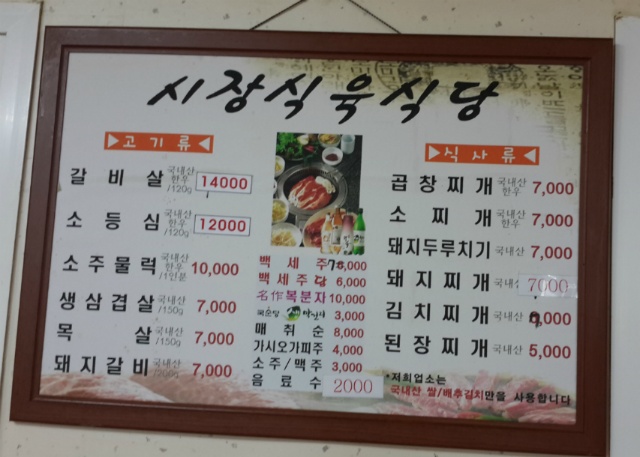 시장식육식당
고기류
갈비살 국내산 한우 /120g 14000
소등심 국내산 한우 /120g 12000
소주물럭 국내산 한우 /1인분 10,000
생삼겹살 국내산 /150g 7,000
목살 국내산 /150g 7,000
돼지갈비 국내산 7,000
백세주 ,000
백세주당 6,000
名作복분자 10,000
3,000
매취순 8,000
가시오가피주 4,000
소주/맥주 3,000
음료수 2000
식사류
곱창찌개 국내산 한우 7,000
소찌개 국내산 한우 7,000
돼지두루치기 국내산 7,000
돼지찌개 7000
김치찌개 국내산 ,000
된장찌개 국내산 5,000
*저희업소는
국내산 쌀/배추김치만을 사용합니다